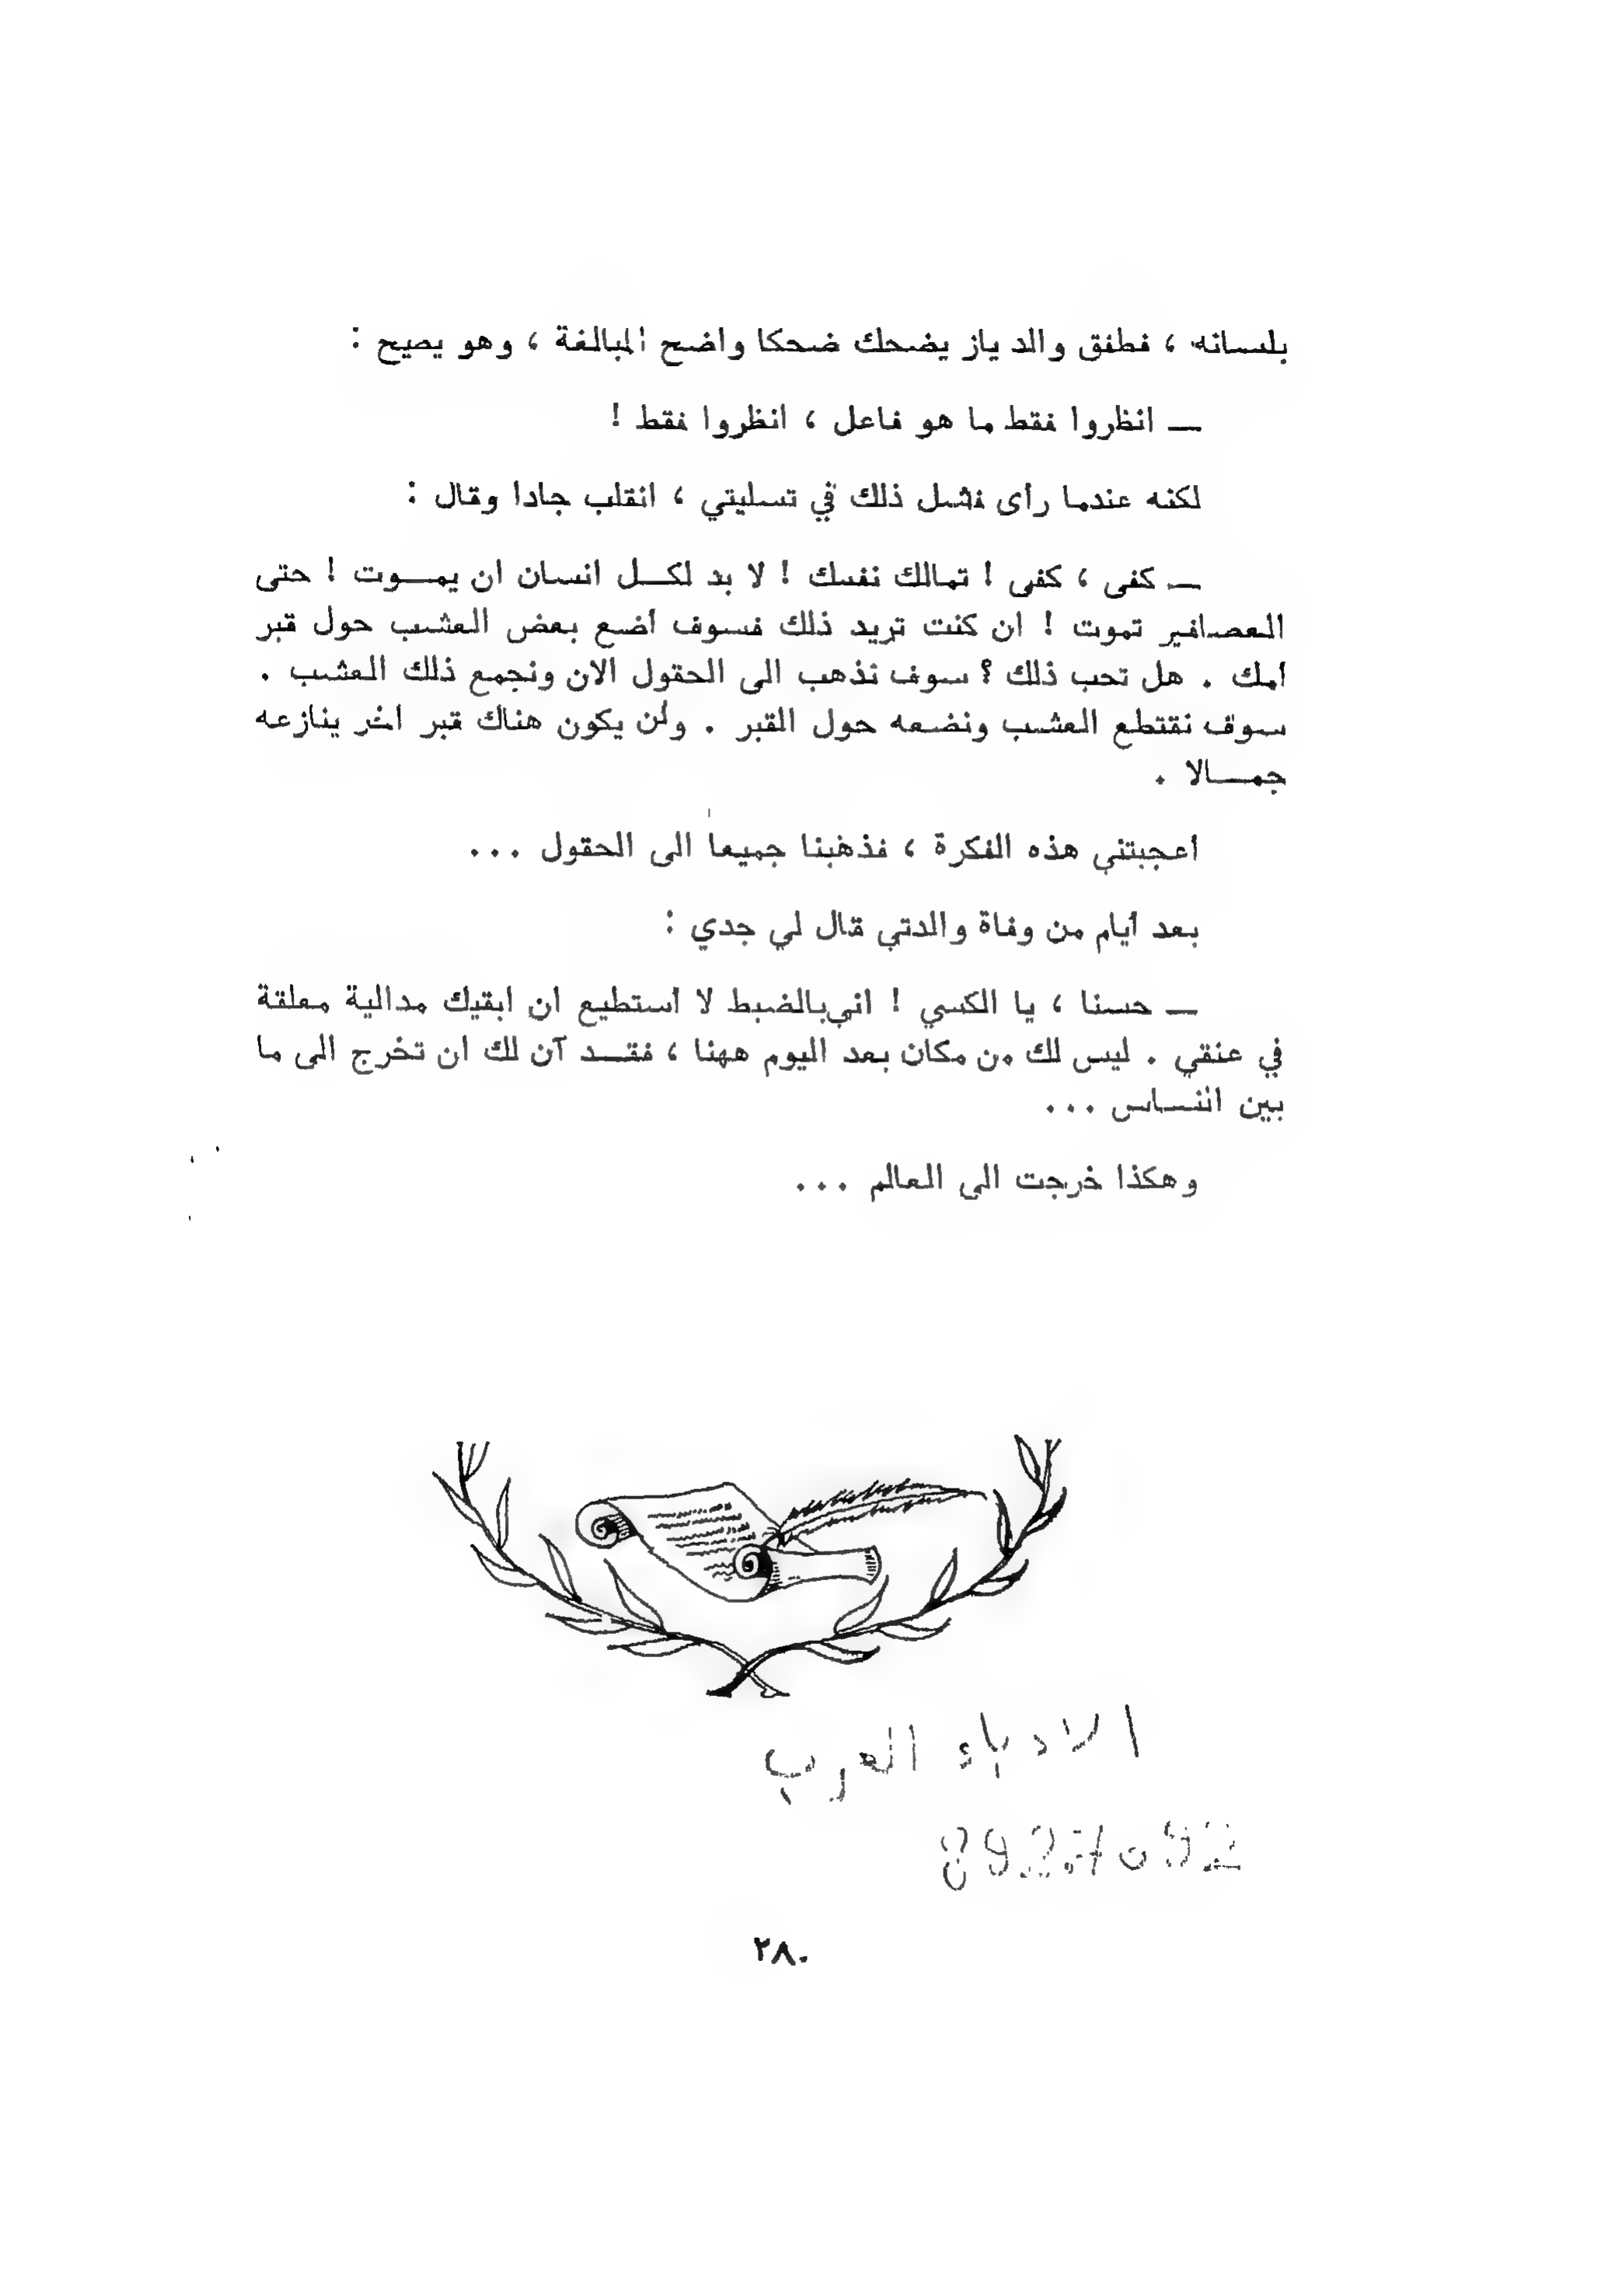 بلسانه ، فطفق والد ياز يضحك ضحكا واضح المبالغة ، وهو يصيح :
— انظروا فقط ما هو فاعل ، انظروا فقط !
لكنه عندما رأى فشل ذلك في تسليتي ، انقلب جادا وقال :
— كفى ، كفى ! تمالك نفسك ! لا بد لكل انسان ان يموت ! حتى
العصافير تموت ! ان كنت تريد ذلك فسوف أضع بعض العشب حول قبر
امك . هل تحب ذلك ؟ سوف نذهب الى الحقول الان ونجمع ذلك العشب .
سوف نقتطع العشب ونضعه حول القبر . ولن يكون هناك قبر اخر ينازعه
جمالا .
أعجبتني هذه الفكرة ، فذهبنا جميعا الى الحقول ...
بعد أيام من وفاة والدتي قال لي جدي :
— حسنا ، يا الكسي ! اني بالضبط لا أستطيع ان ابقيك مدالية معلقة
في عنقي . ليس لك من مكان بعد اليوم ههنا ، فقد آن لك ان تخرج الى ما
بين الناس ...
وهكذا خرجت الى العالم ...
الادباء العرب
٢٨٠